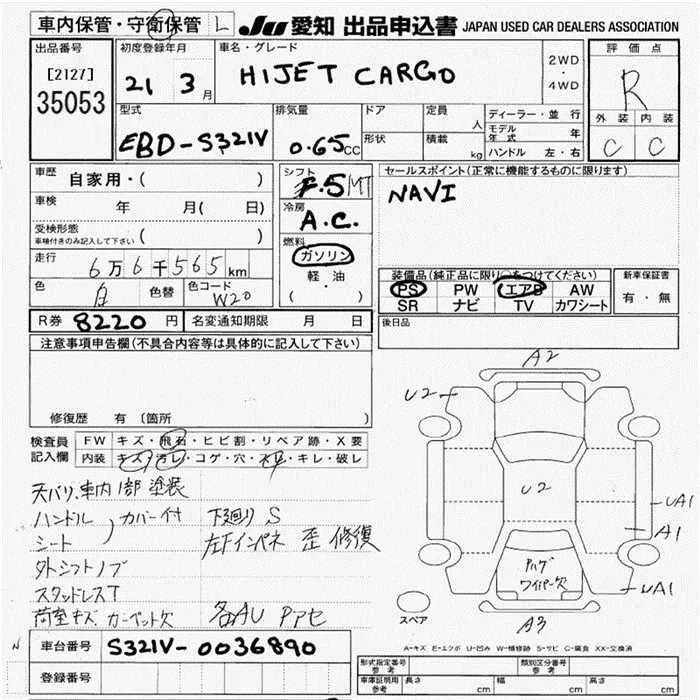 車内保管・守衛保管 L JU 愛知 出品申込書 JAPAN USED CAR DEALERS ASSOCIATION
出品番号
[2127]
35053
初度登録年月
21 3月
車名・グレード
HIJET CARGO
2WD
・
4WD
評価点
R
外装 内装
C C
型式
EBD-S321V
排気量
0.65cc
ドア
形状
定員
人
積載
kg
ディーラー・並行
モデル年式 年
ハンドル 左・右
車歴 自家用・( )
車検 年 月( 日)
受検形態
車検付きのみ記入して下さい ( )
走行 6万6千565km
色 白 色替 色コード W20
シフト
F.5 MT
冷房
A.C.
燃料
ガソリン
軽・油
( )
セールスポイント(正常に機能するものに限ります)
NAVI
装備品(純正品に限り○をつけてください)
PS PW エアB AW
SR ナビ TV カワシート
新車保証書
有・無
R券 8220円 名変通知期限 月 日
後日品
注意事項申告欄(不具合内容等は具体的に記入して下さい)
修復歴 有 〔箇所 〕
検査員
記入欄
FW キズ・飛石・ヒビ割・リペア跡・X要
内装 キズ・汚レ・コゲ・穴・キレ・破レ
天バリ、車内1部塗装
ハンドル カバー付 下廻り S
シート 左Fインパネ 歪 修復
外シフトノブ
スタッドレスT
荷室キズ カーペット欠 各AU Pアセ
A2
U2
U2
UA1
A1
UA1
ハゲ
ワイパー欠
A3
スペア
A-キズ E-エクボ U-凹み W-補修跡 S-サビ C-腐食 XX-交換済
N
車台番号 S321V-0036890
登録番号
形式指定番号
参考
類別区分番号
参考
車庫証明用
参考
長さ cm 幅 cm 高さ cm